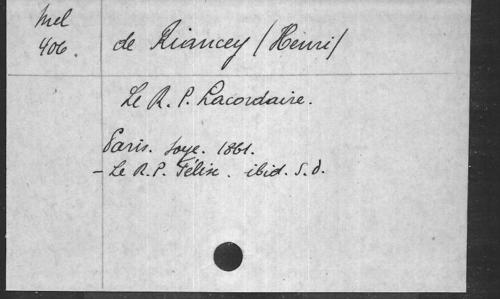 Mel
406. de Riancey /Henri/
Le R. P. Lacordaire.
Paris. Soye. 1861.
- Le R. P. Félix. ibid. S. d.